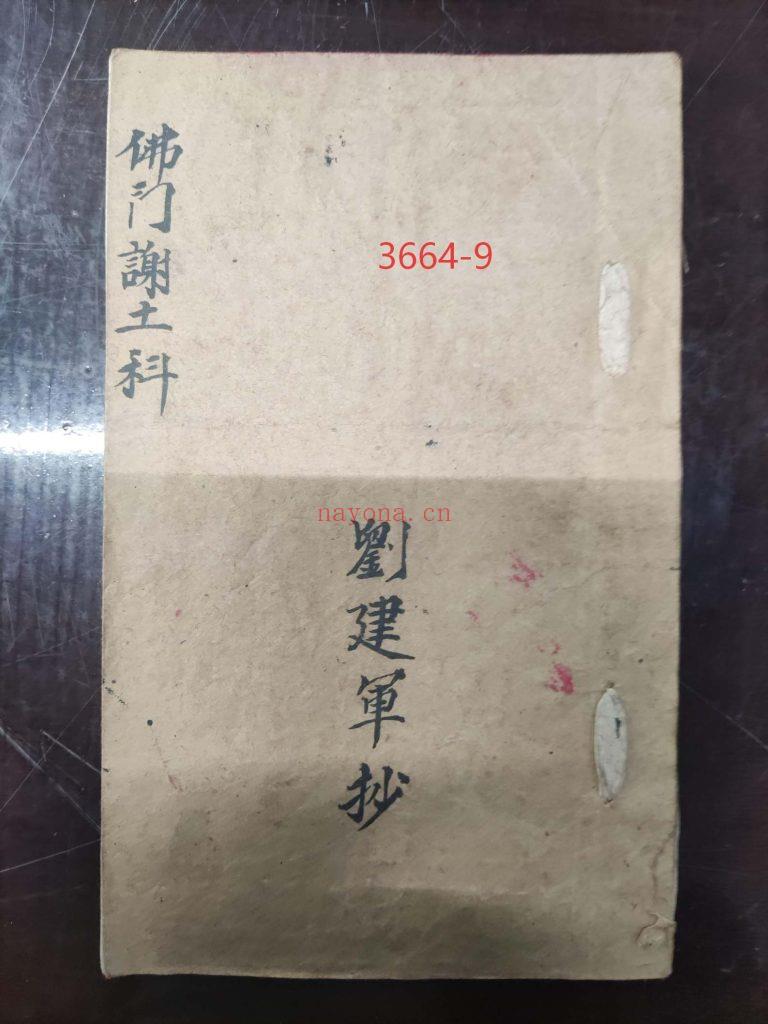 佛门謝土科
3664-9
nayona.cn
劉建軍抄